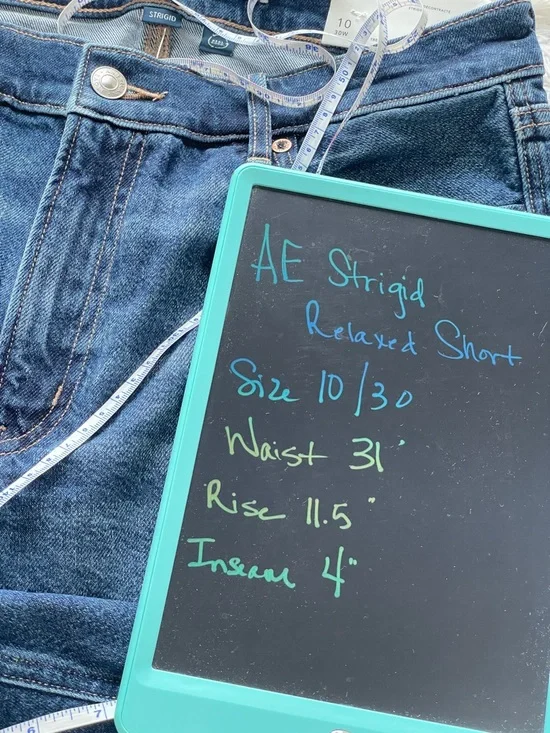 STRIGID
10
30W
AE Strigid
Relaxed Short
Size 10/30
Waist 31"
Rise 11.5"
Inseam 4"